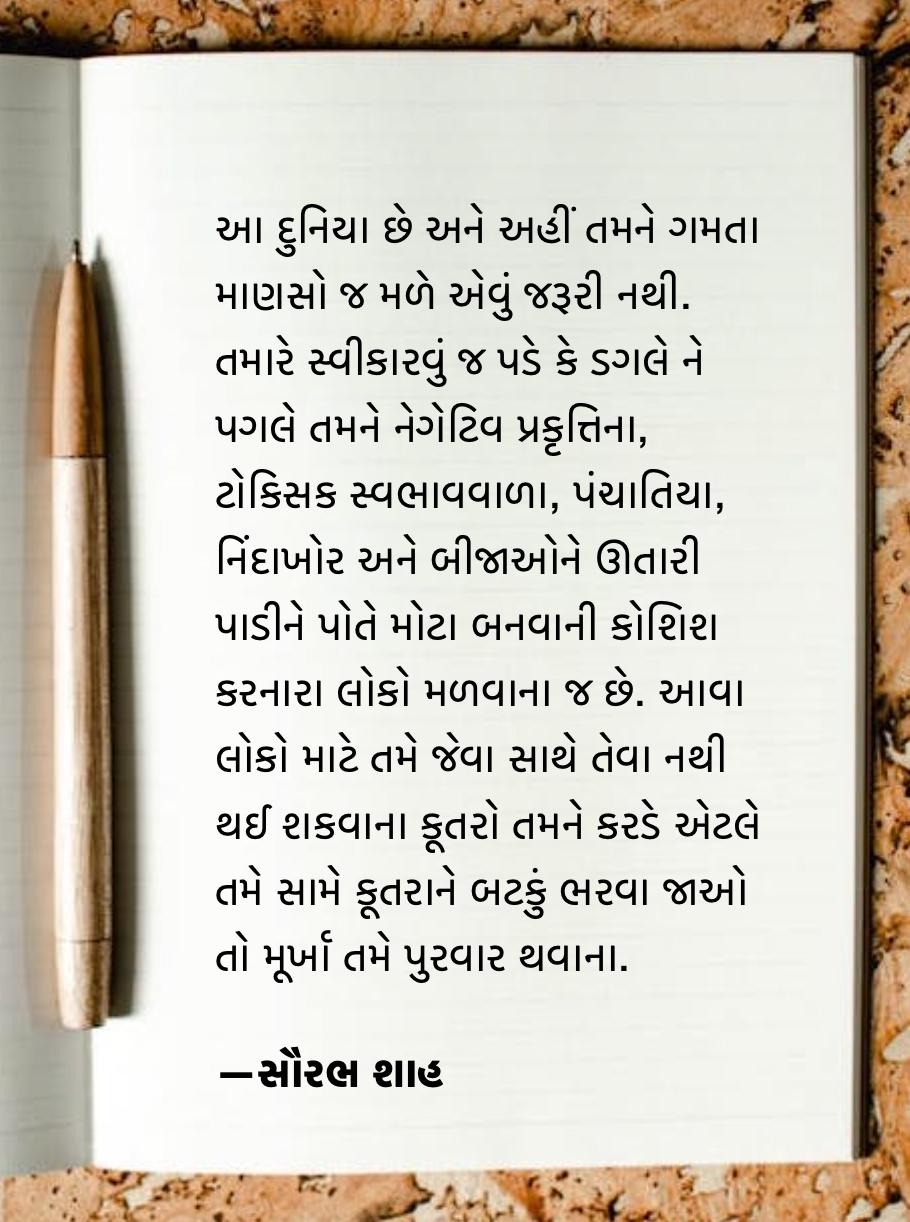 આ દુનિયા છે અને અહીં તમને ગમતા
માણસો જ મળે એવું જરૂરી નથી.
તમારે સ્વીકારવું જ પડે કે ડગલે ને
પગલે તમને નેગેટિવ પ્રકૃત્તિના,
ટોકિસક સ્વભાવવાળા, પંચાતિયા,
નિંદાખોર અને બીજાઓને ઊતારી
પાડીને પોતે મોટા બનવાની કોશિશ
કરનારા લોકો મળવાના જ છે. આવા
લોકો માટે તમે જેવા સાથે તેવા નથી
થઈ શકવાના કૂતરો તમને કરડે એટલે
તમે સામે કૂતરાને બટકું ભરવા જાઓ
તો મૂર્ખા તમે પુરવાર થવાના.
—સૌરભ શાહ